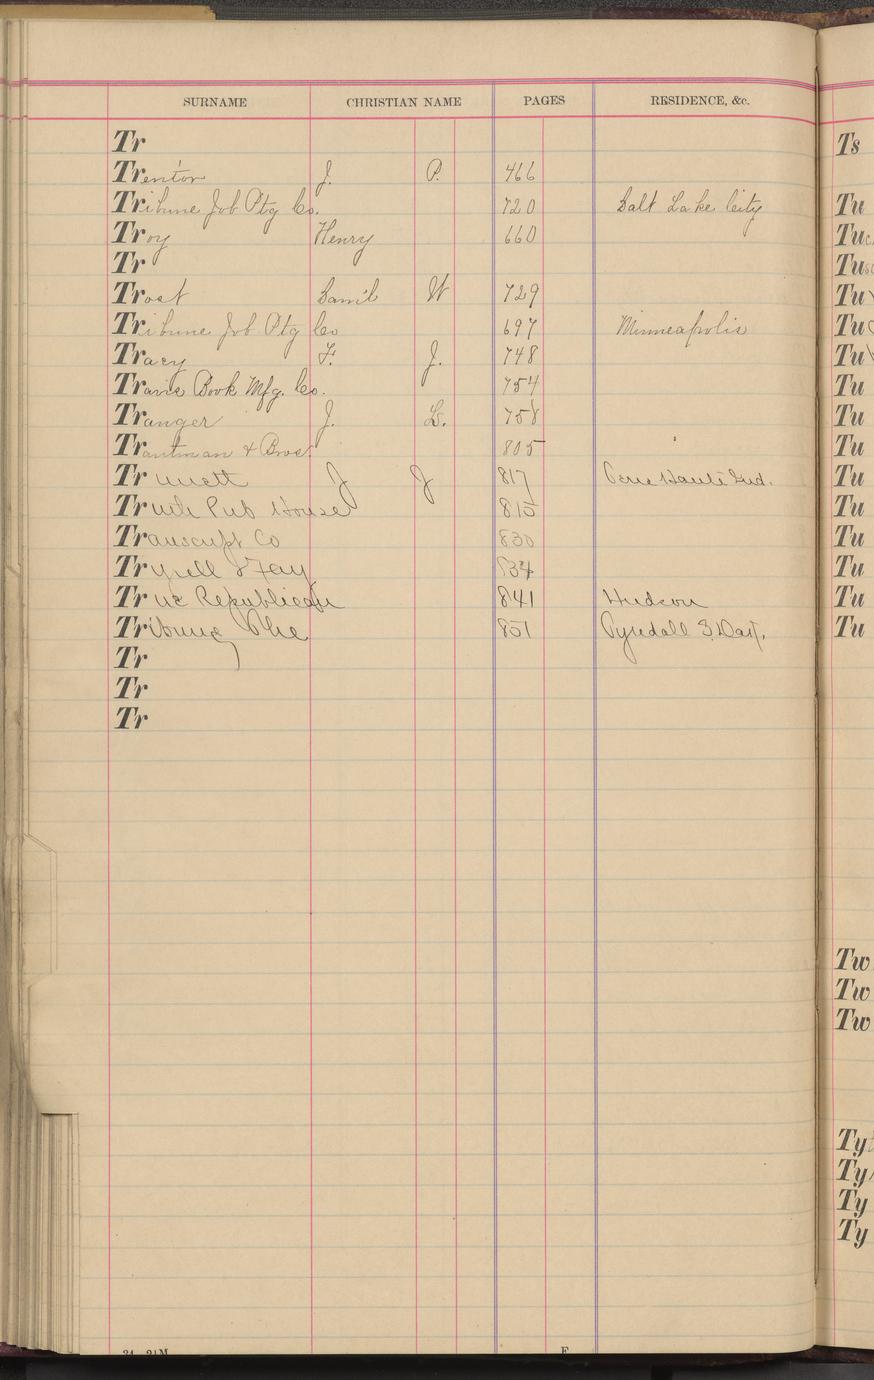 SURNAME CHRISTIAN NAME PAGES RESIDENCE, &c.
Tr
Trenton J. P. 466
Tribune Job Ptg Co. 720 Salt Lake City
Troy Henry 660
Tr
Trost Sam'l W 729
Tribune Job Ptg Co 697 Minneapolis
Tracy F. J. 748
Travis Book Mfg. Co. 754
Tranger J. L. 758
Trautman & Bros. 805
Tr J J 817 Terre Haute Ind.
Truth Pub House 815
Transcript Co 830
Tryell & Fay 834
True Republican 841 Hudson
Tribune The 851 Tyndall S. Dak.
Tr
Tr
Tr
Ts
Tu
Tuc
Tus
Tu
Tu
Tu
Tu
Tu
Tu
Tu
Tu
Tu
Tu
Tu
Tu
Tw
Tw
Tw
Ty
Ty
Ty
Ty